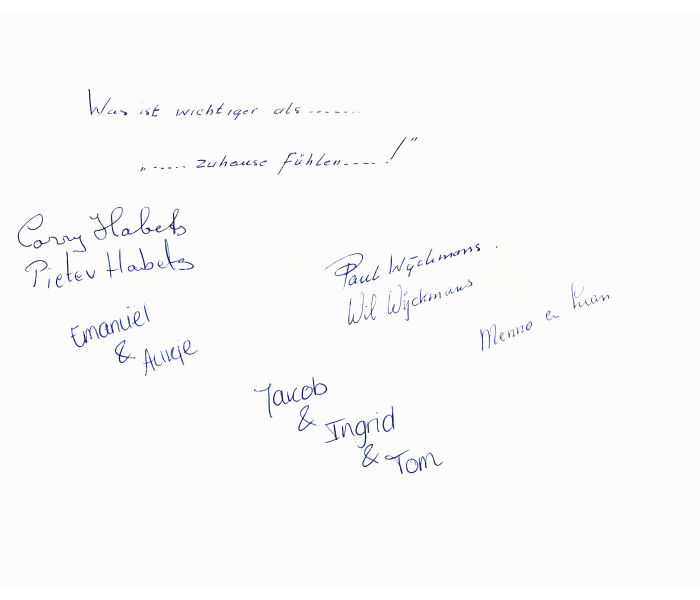 Was ist wichtiger als .......
„ ...... zuhause fühlen..... !"
Corry Habets
Pieter Habets
Paul Wijckmans .
Wil Wijckmans
Menno en
Emanuël
& Aukje
Jakob
& Ingrid
& Tom